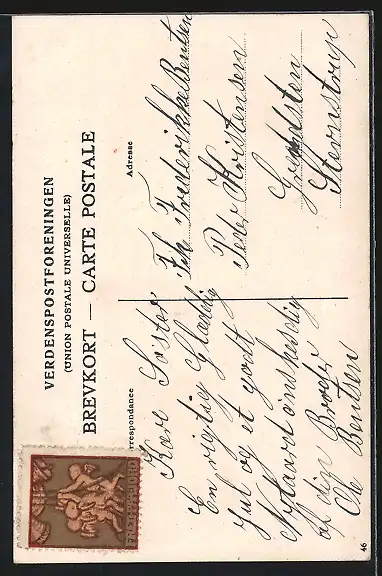 VERDENSPOSTFORENINGEN
(UNION POSTALE UNIVERSELLE)
BREVKORT — CARTE POSTALE
rrespondance
Adresse
Kære Søster
En rigtig Glædelig
Jul og et godt
Nytaar ønskes dig
af din Broder
Ole Bentsen
Frk Frederikke Bentsen
Peder Kristensen
Stevnstrup
46